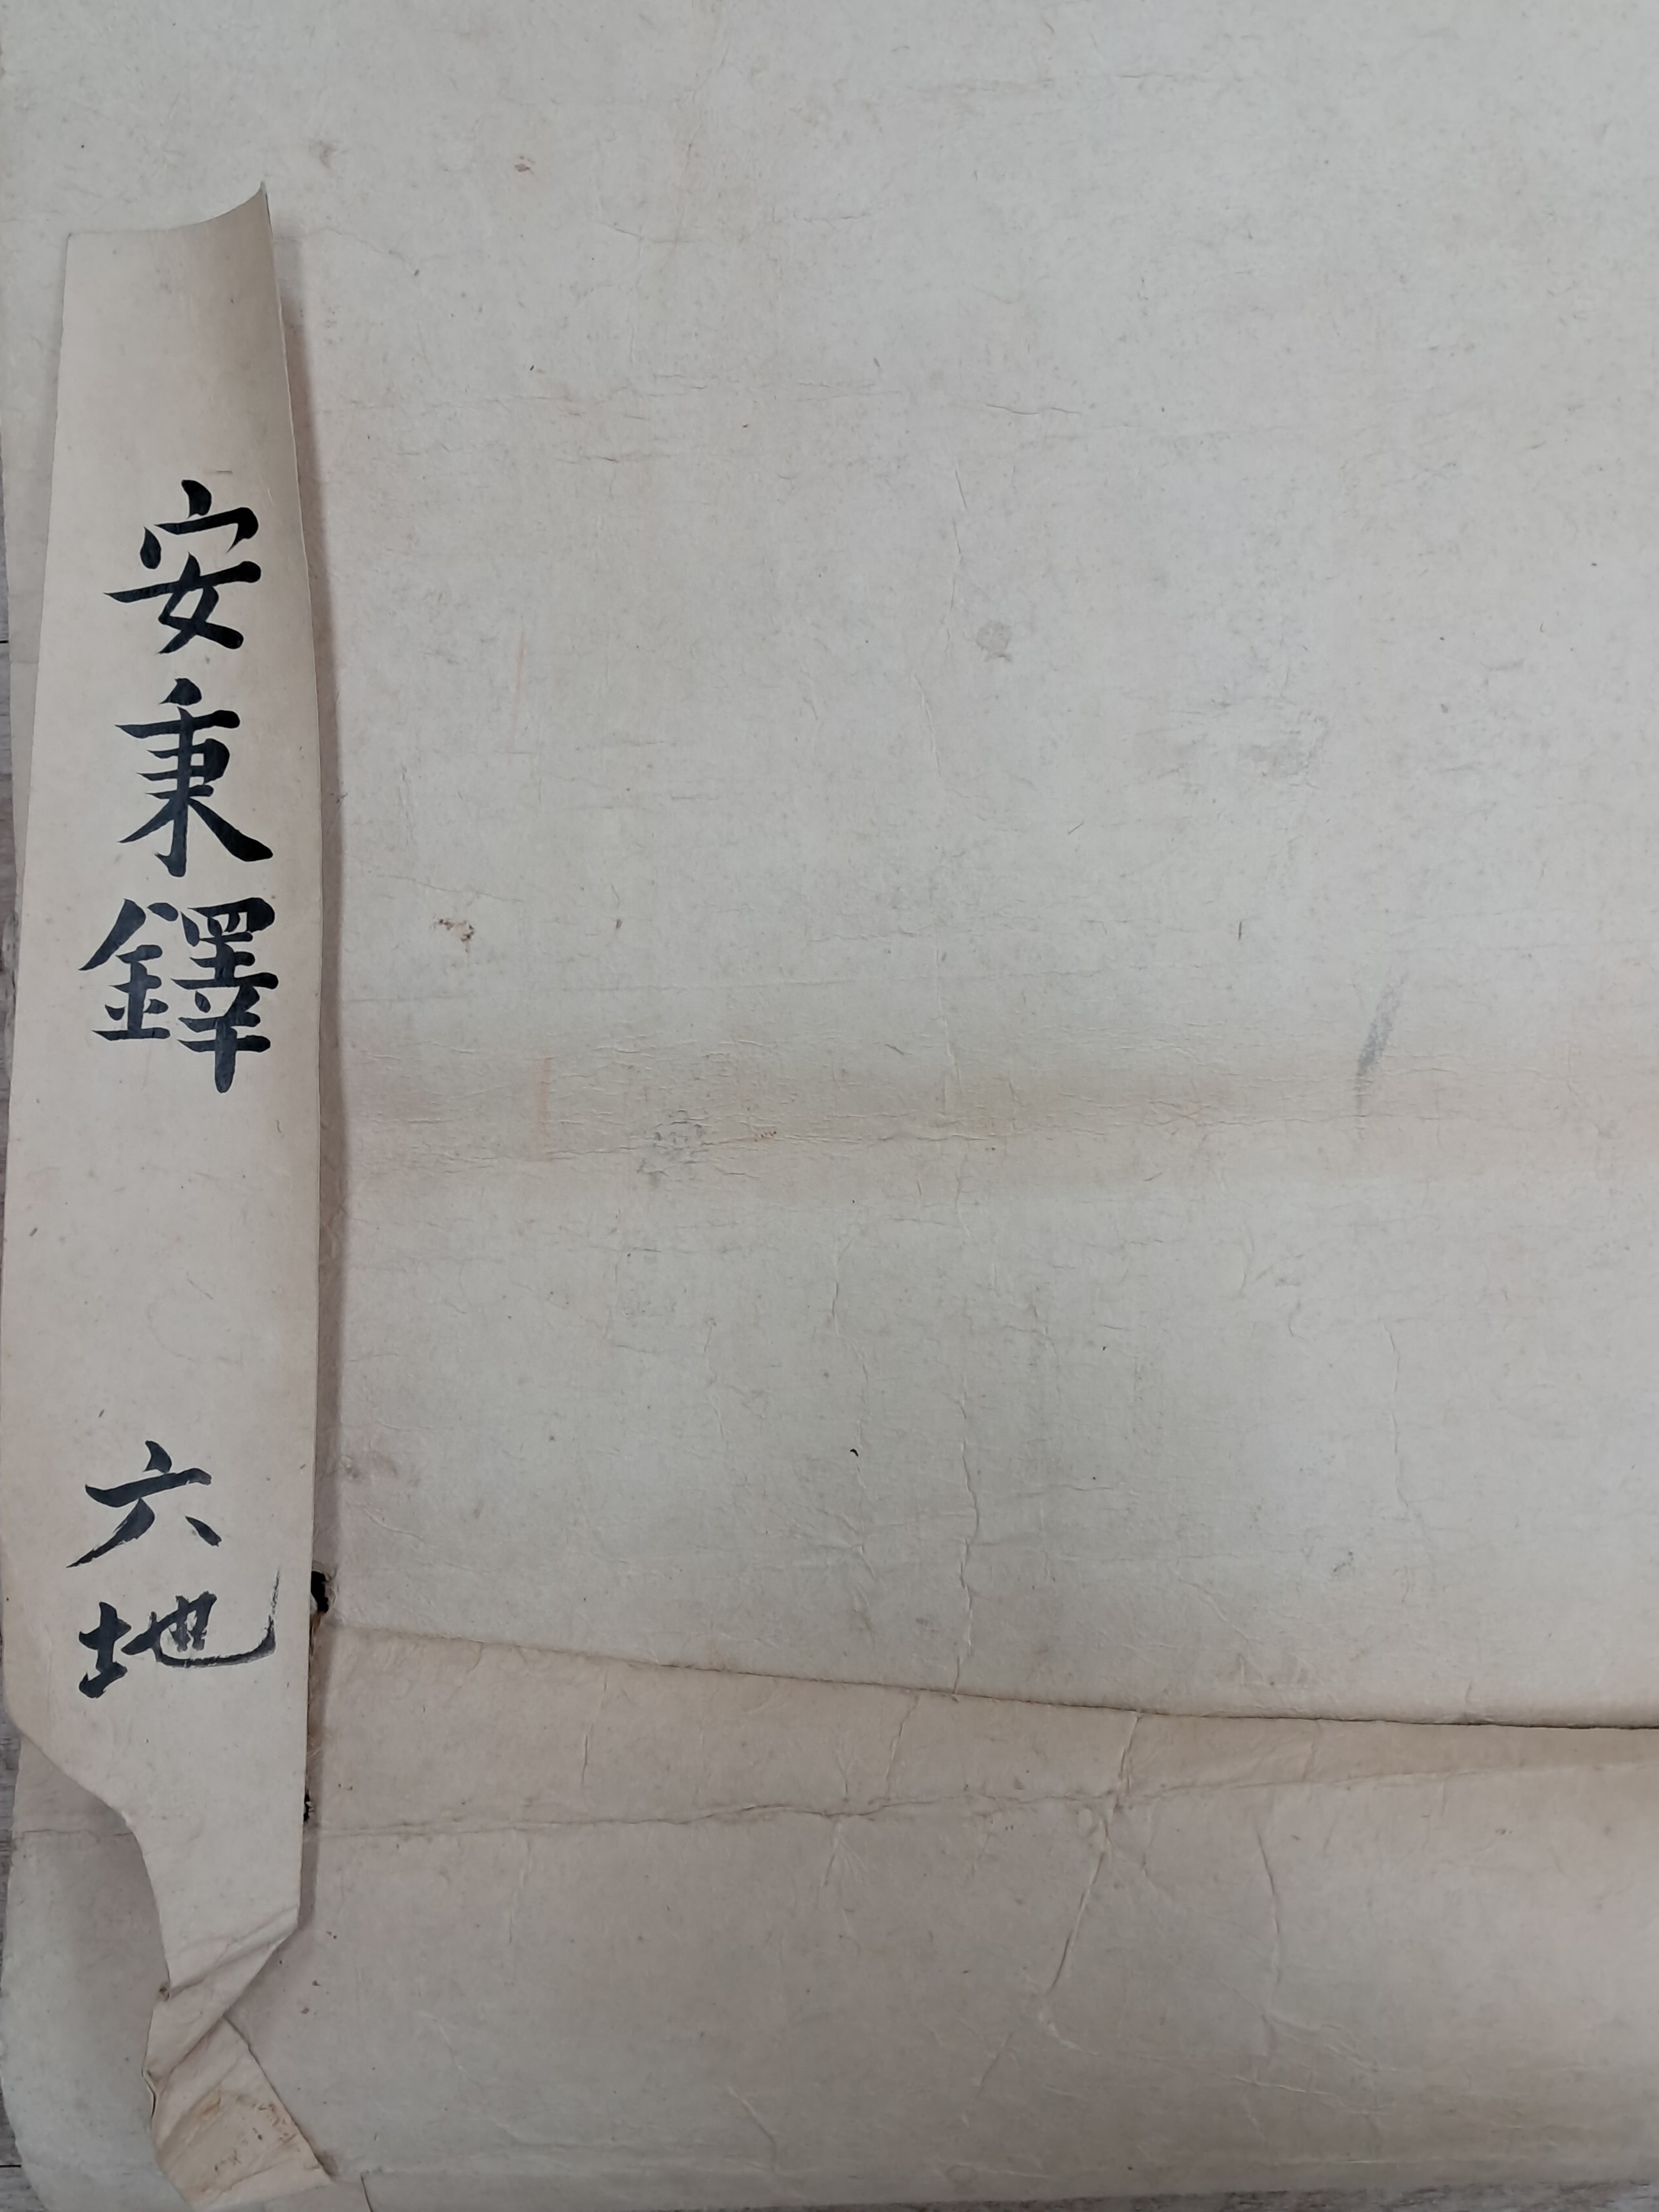 安秉鐸 六地